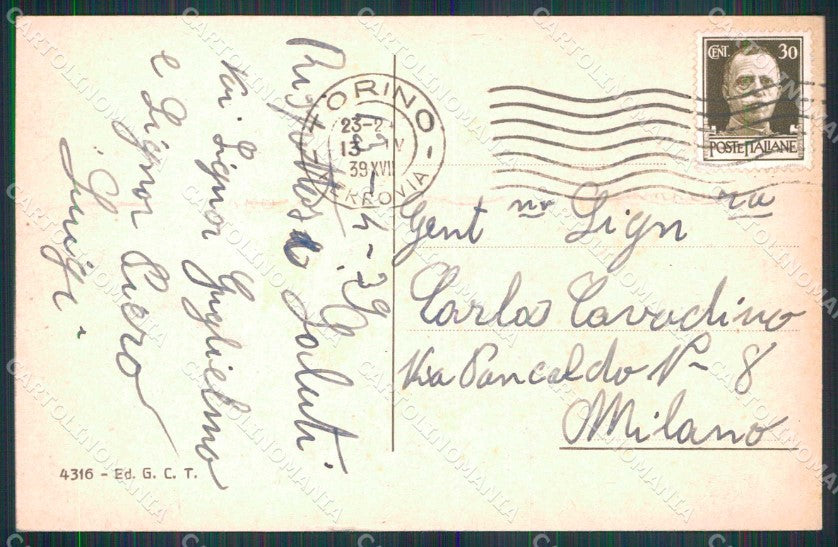 13-4-39
Rispettosi Saluti
Voi Signor Guglielmo
e Signor Piero
Luigi
TORINO
23-2
13 IV
39 XVII
FERROVIA
CENT. 30
POSTE ITALIANE
Gent ma Sign ra
Carla Cavadino
Via Pancaldo N- 8
Milano
4316 - Ed. G. C. T.
CARTOLINOMANIA